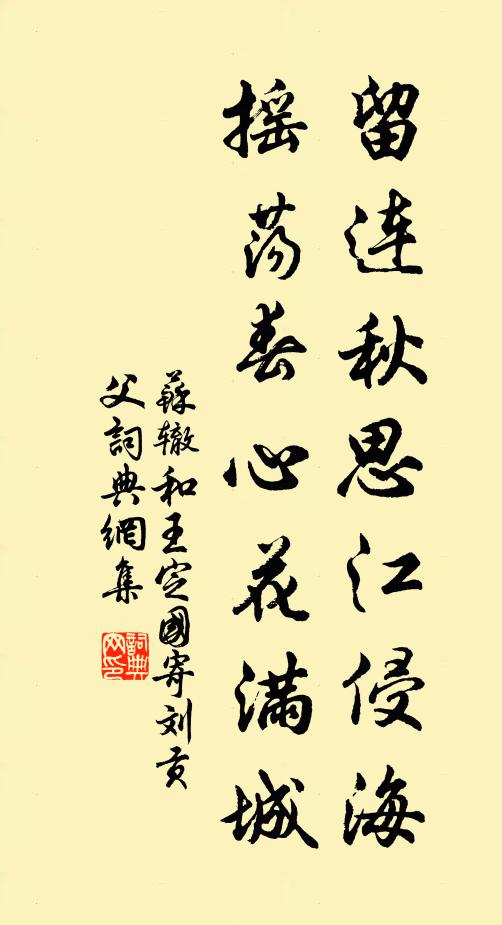 留连秋思江侵海
摇荡春心花满城
蘇辙和王定國寄刘贡
父詞典網集
詞典网印